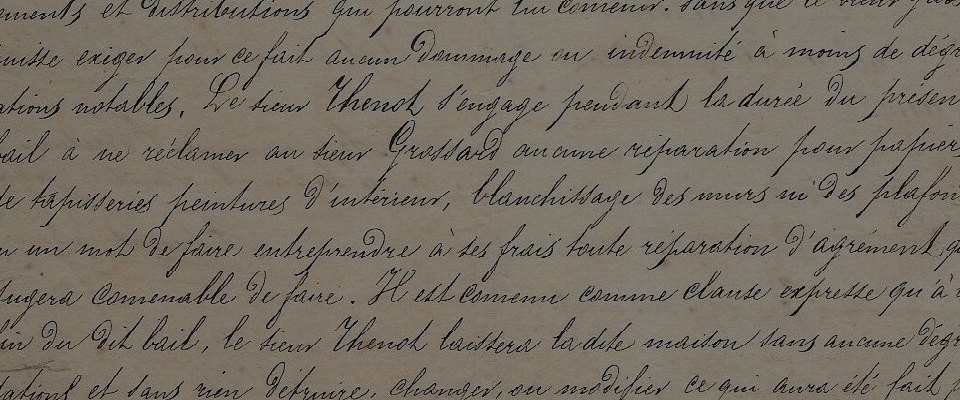 ements et distributions qui pourront lui convenir. sans que le sieur
uisse exiger pour ce fait aucun dommage ou indemnité à moins de dégr
ations notables. Le sieur Thenot s'engage pendant la durée du présen
bail à ne réclamer au sieur Grossard aucune réparation pour papiers
de tapisseries peintures d'intérieur, blanchissage des murs ni des plafon
n un mot de faire entreprendre à ses frais toute réparation d'agrément, qu
jugera convenable de faire. Il est convenu comme clause expresse qu'à
fin du dit bail, le sieur Thenot laissera la dite maison sans aucune dégr
dations et sans rien détruire, changer, ou modifier ce qui aura été fait